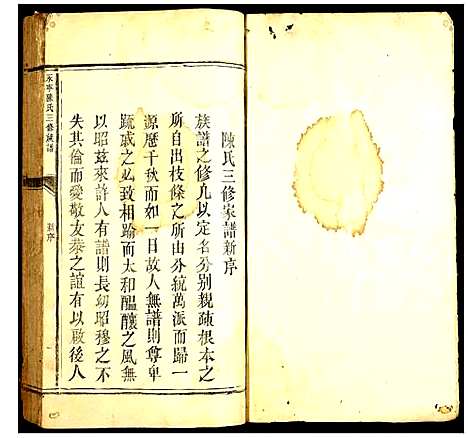 陳氏三修家譜新序
族譜之修凡以定名分别親疎根本之
所自出枝條之所由分統萬派而歸一
源歷千秋而如一日故人無譜則尊卑
疏戚之必致相踰而太和醞釀之風無
以昭茲來許人有譜則長幼昭穆之不
失其倫而愛敬友恭之誼有以啟後人
永寧陳氏三修族譜
新序